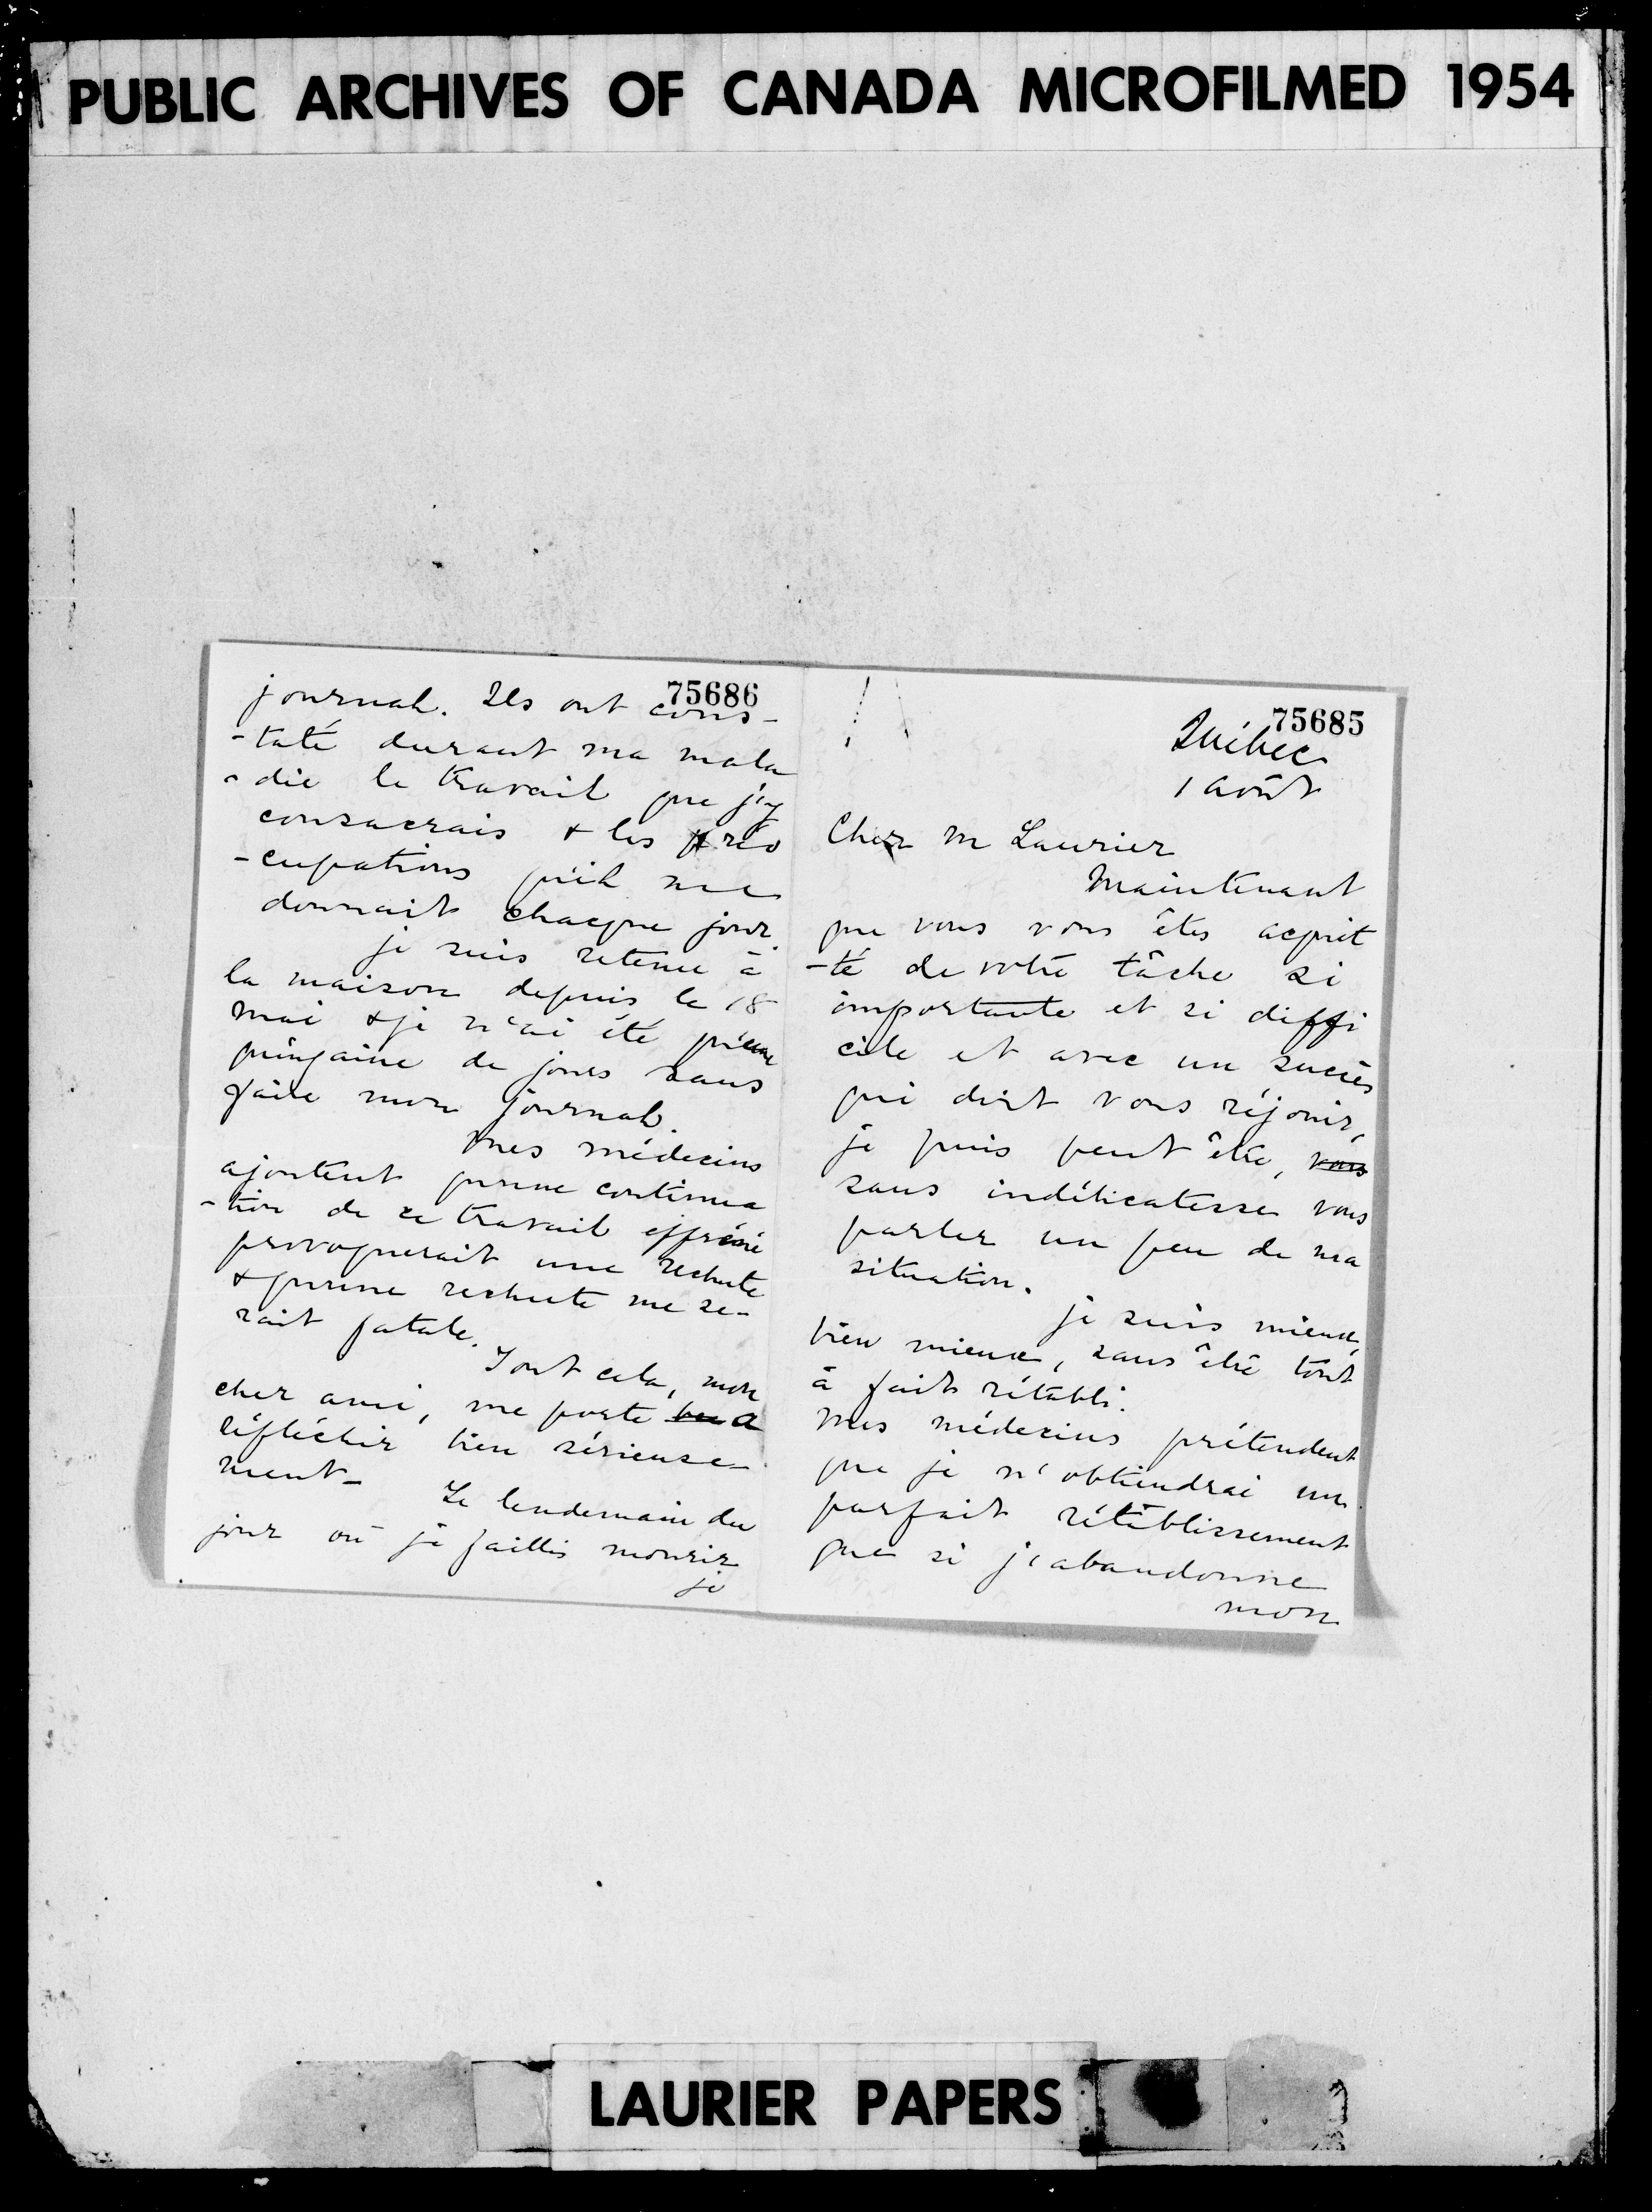 PUBLIC ARCHIVES OF CANADA MICROFILMED 1954
75685
Québec
1 août
Cher M Laurier
Maintenant
que vous vous êtes acquit
-té de votre tâche si
importante et si diffi
cile et avec un succès
qui doit vous réjouir,
je puis peut être, vous
sans indélicatesse vous
parler un peu de ma
situation.
je suis mieux,
bien mieux, sans être tout
à fait rétabli.
Mes médecins prétendent
que je n'obtiendrai un
parfait rétablissement
que si j'abandonne
mon
75686
journal. Ils ont cons-
-taté durant ma mala
-die le travail que j'y
consacrais & les préo
-cupations qu'il me
donnait chaque jour.
je suis retenu à
la maison depuis le 18
mai & je n'ai été qu'une
quinzaine de jours sans
faire mon journal.
Mes médecins
ajoutent qu'une continua
-tion de ce travail effréné
provoquerait une rechute
& qu'une rechute me se-
rait fatale.
Tout cela, mon
cher ami, me porte a
réfléchir bien sérieuse-
ment- Le lendemain du
jour où je faillis mourir
je
LAURIER PAPERS